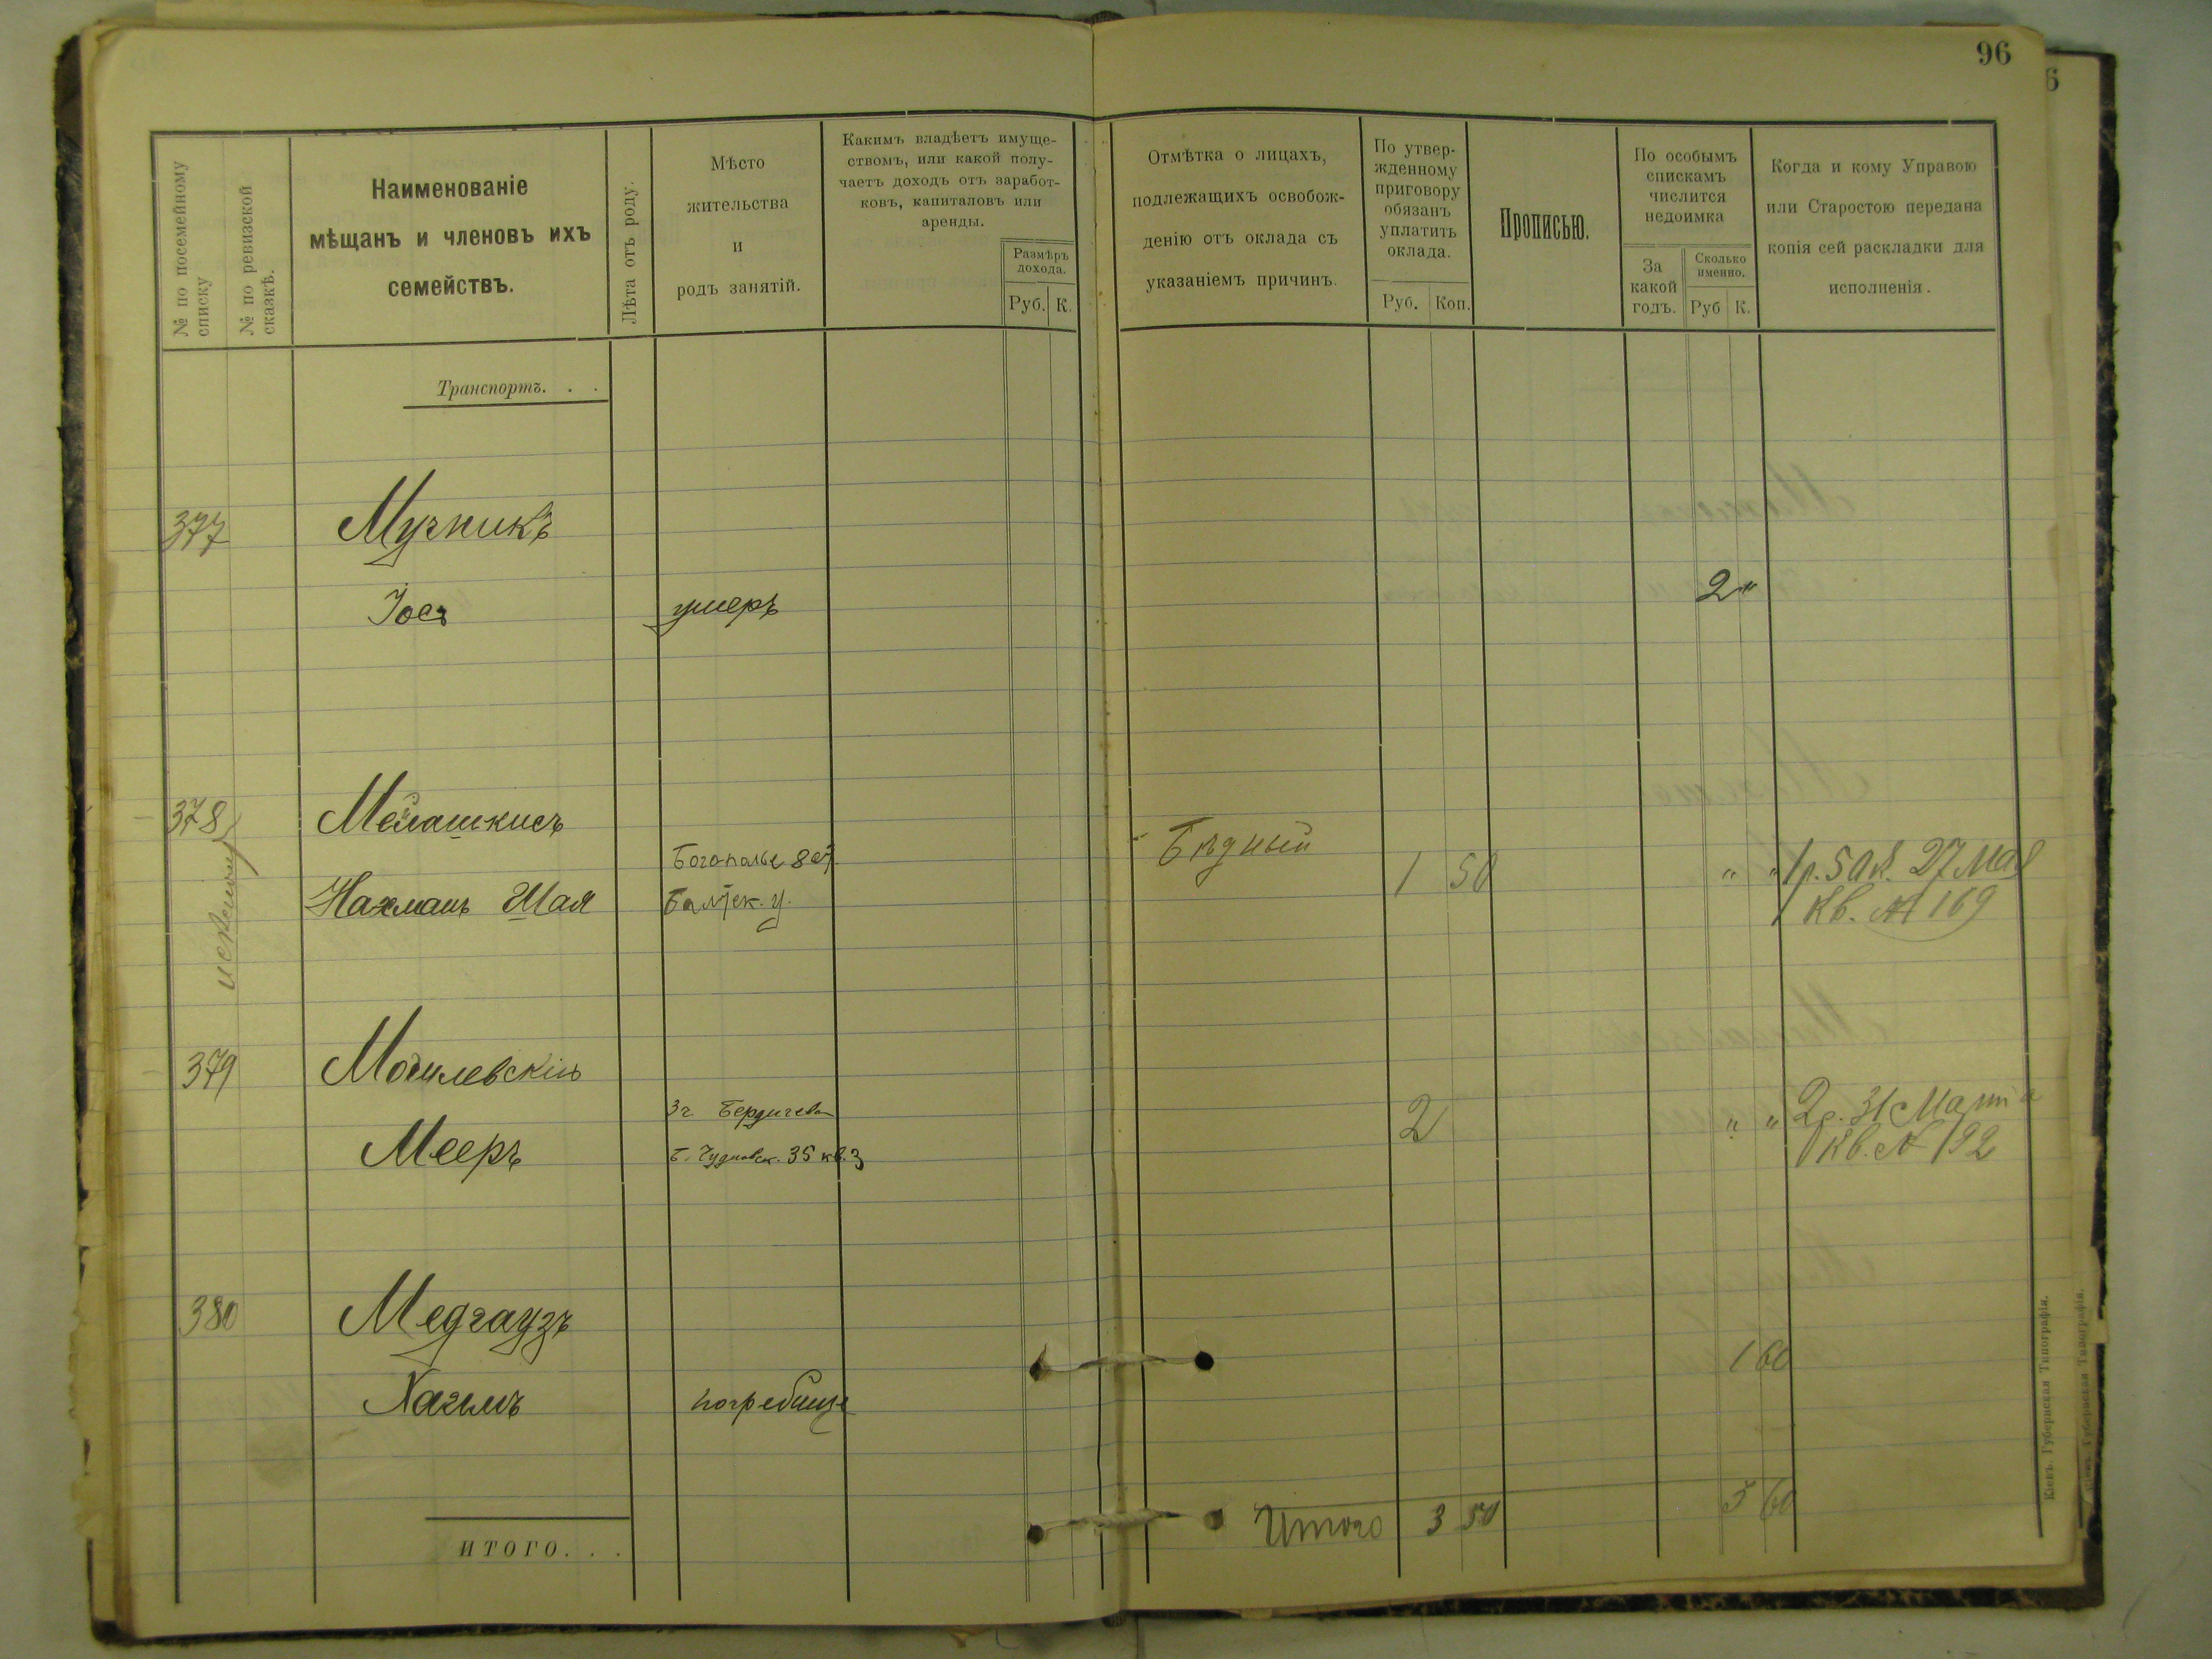 96
6
№ по посемейному списку
№ по ревизской сказкѣ.
Наименованіе
мѣщанъ и членовъ ихъ
семействъ.
Лѣта отъ роду.
Мѣсто
жительства
и
родъ занятій.
Какимъ владѣетъ имуще-
ствомъ, или какой полу-
чаетъ доходъ отъ заработ-
ковъ, капиталовъ или
аренды.
Размѣръ
дохода.
Руб. К.
Отмѣтка о лицахъ,
подлежащихъ освобож-
денію отъ оклада съ
указаніемъ причинъ.
По утвер-
жденному
приговору
обязанъ
уплатить
оклада.
Руб. Коп.
Прописью.
По особымъ
спискамъ
числится
недоимка
За
какой
годъ.
Сколько
именно.
Руб К.
Когда и кому Управою
или Старостою передана
копія сей раскладки для
исполненія.
Транспортъ. . .
377 Мучникъ
Іосъ умеръ 2 "
378 Мелашкисъ
Бѣдный
Нахманъ Шая Балтск. у. 1 50 " " 1р. 50к. 27 мая
Кв. № 169
379 Могилевскій
Бердичевъ
Мееръ Б. Чудновск. 35 кв. 3 2 " " 2р. 31 Марта
Кв. № 192
380 Медгаузъ
Хаимъ погребище 1 60
Итого 3 50 3 60
ИТОГО. . .
Кіевъ. Губернская Типографія.